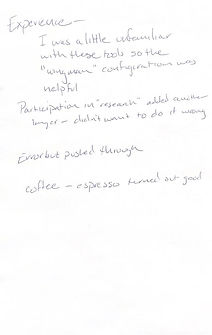 Experience —
I was a little unfamiliar
with these tools so the
"wingman" configuration was
helpful
Participation in "research" added another
layer — didn't want to do it wrong
Error but pushed through
coffee — espresso turned out good